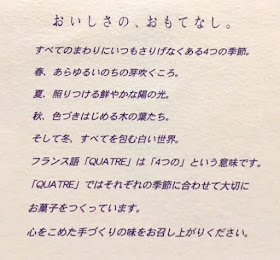 おいしさの、おもてなし。
すべてのまわりにいつもさりげなくある4つの季節。
春、あらゆるいのちの芽吹くころ。
夏、照りつける鮮やかな陽の光。
秋、色づきはじめる木の葉たち。
そして冬、すべてを包む白い世界。
フランス語「QUATRE」は「4つの」という意味です。
「QUATRE」ではそれぞれの季節に合わせて大切に
お菓子をつくっています。
心をこめた手づくりの味をお召し上がりください。